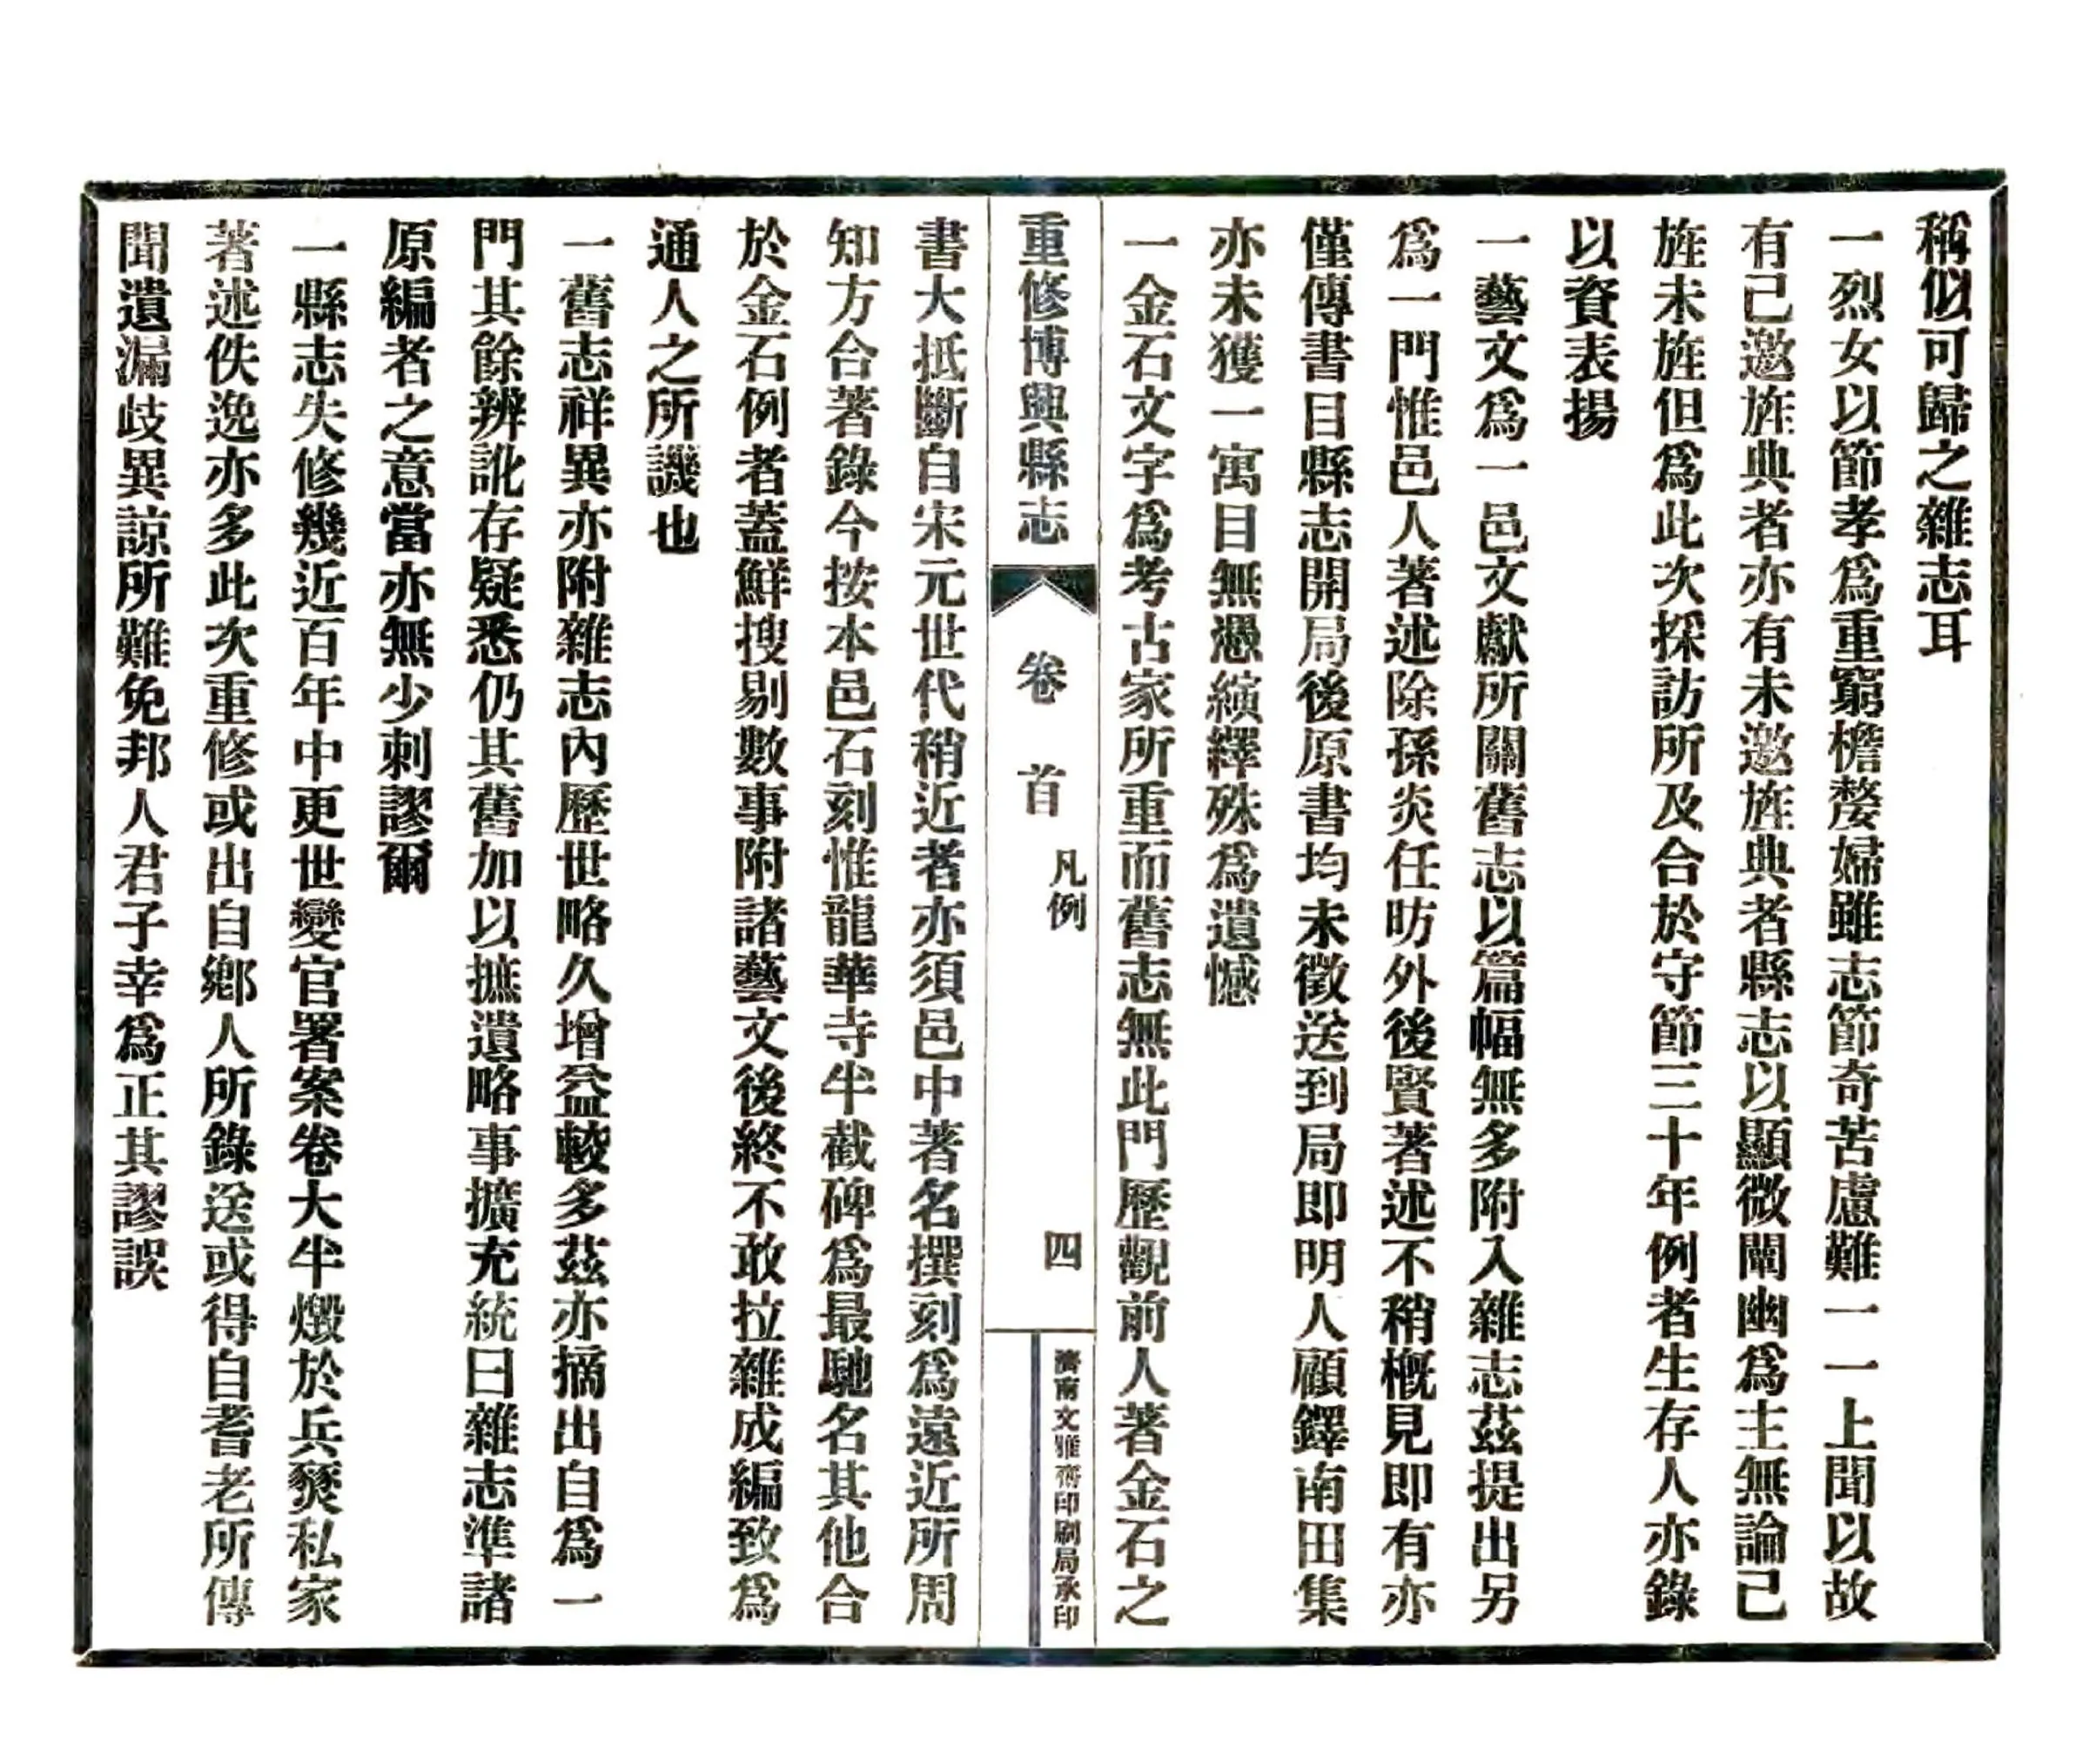 稱似可歸之雜志耳
一烈女以節孝爲重窮檐嫠婦雖志節奇苦慮難一一上聞以故
有已邀旌典者亦有未邀旌典者縣志以顯微闡幽爲主無論已
旌未旌但爲此次採訪所及合於守節三十年例者生存人亦錄
以資表揚
一藝文爲一邑文獻所關舊志以篇幅無多附入雜志茲提出另
爲一門惟邑人著述除孫炎任昉外後賢著述不稍槪見即有亦
僅傳書目縣志開局後原書均未徵送到局即明人顧鐸南田集
亦未獲一寓目無憑繽繹殊爲遺憾
一金石文字爲考古家所重而舊志無此門歷觀前人著金石之
重修博興縣志
卷首
凡例
四
濟南文雅齋印刷局承印
書大抵斷自宋元世代稍近者亦須邑中著名撰刻爲遠近所周
知方合著錄今按本邑石刻惟龍華寺半截碑爲最馳名其他合
於金石例者蓋鮮搜剔數事附諸藝文後終不敢拉雜成編致爲
通人之所譏也
一舊志祥異亦附雜志內歷世略久增益較多茲亦摘出自爲一
門其餘辨訛存疑悉仍其舊加以摭遺略事擴充統曰雜志準諸
原編者之意當亦無少刺謬爾
一縣志失修幾近百年中更世變官署案卷大半燬於兵燹私家
著述佚逸亦多此次重修或出自鄉人所錄送或得自耆老所傳
聞遺漏歧異諒所難免邦人君子幸爲正其謬誤